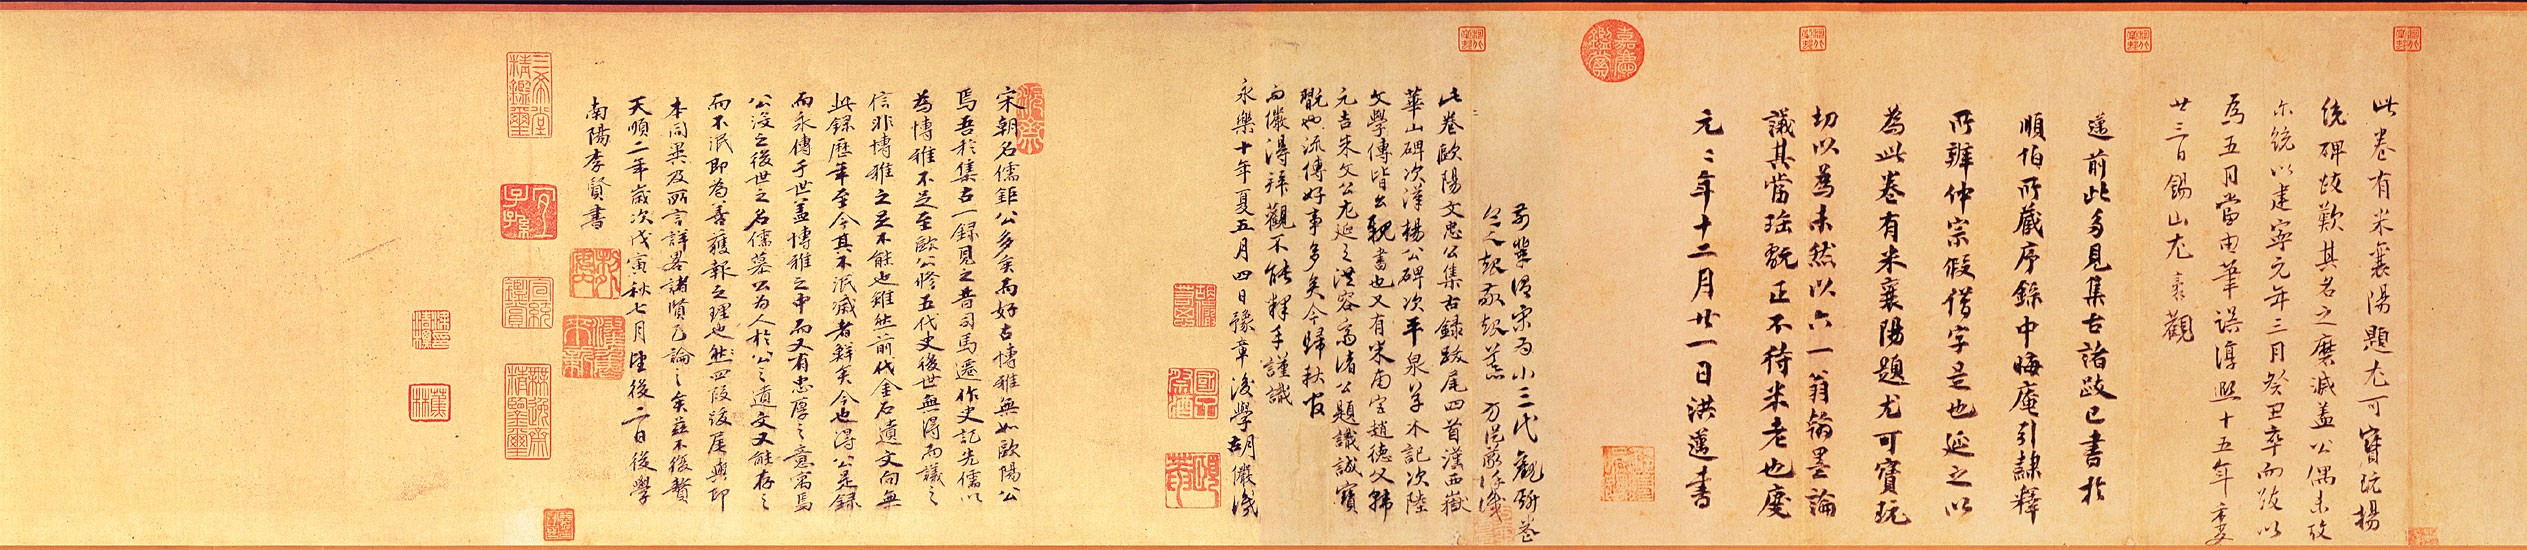 此卷有米襄陽題尤可寶玩楊
統碑跋歎其名之磨滅蓋公偶未攷
尓統以建寧元年三月癸丑卒而跋以
為五月當由筆誤淳熙十五年季夏
廿三日錫山尤袤觀
邁前此多見集古諸跋已書於
順伯所藏序錄中晦庵引隸釋
所辯仲宗假借字是也延之以
為此卷有米襄陽題尤可寶玩
切以為未然以六一翁翰墨論
議其當珍翫正不待米老也慶
元二年十二月廿一日洪邁書
前輩謂宋為小三代觀歐卷
此卷歐陽文忠公集古錄跋尾四首漢西嶽
華山碑次漢楊公碑次平泉草木記次陸
文學傳皆公親書也又有米南宮趙德父韓
元吉朱文公尤延之洪容齋諸公題識誠寶
翫也流傳好事多矣今歸秋官
而儼得拜觀不能釋手謹識
永樂十年夏五月四日豫章後學胡儼識
宋朝名儒鉅公多矣而好古博雅無如歐陽公
焉吾於集古一錄見之昔司馬遷作史記先儒以
為博雅不足至歐公修五代史後世無得而議之
信非博雅之至不能也雖然前代金石遺文向無
此錄歷年至今其不泯滅者鮮矣今也得公是錄
而永傳于世蓋博雅之中而又有忠厚之意寓焉
公沒之後世之名儒慕公為人於公之遺文又能存之
而不泯即為善獲報之理也然四段跋尾與印
本同異及所言詳畧諸賢已論之矣茲不復贅
天順二年歲次戊寅秋七月望後二日後學
南陽李賢書
嘉慶鑑賞
三希堂精鑑璽
宜子孫
宣統鑑賞
無逸齋精鑒璽
蕉林
胡儼
國子祭酒